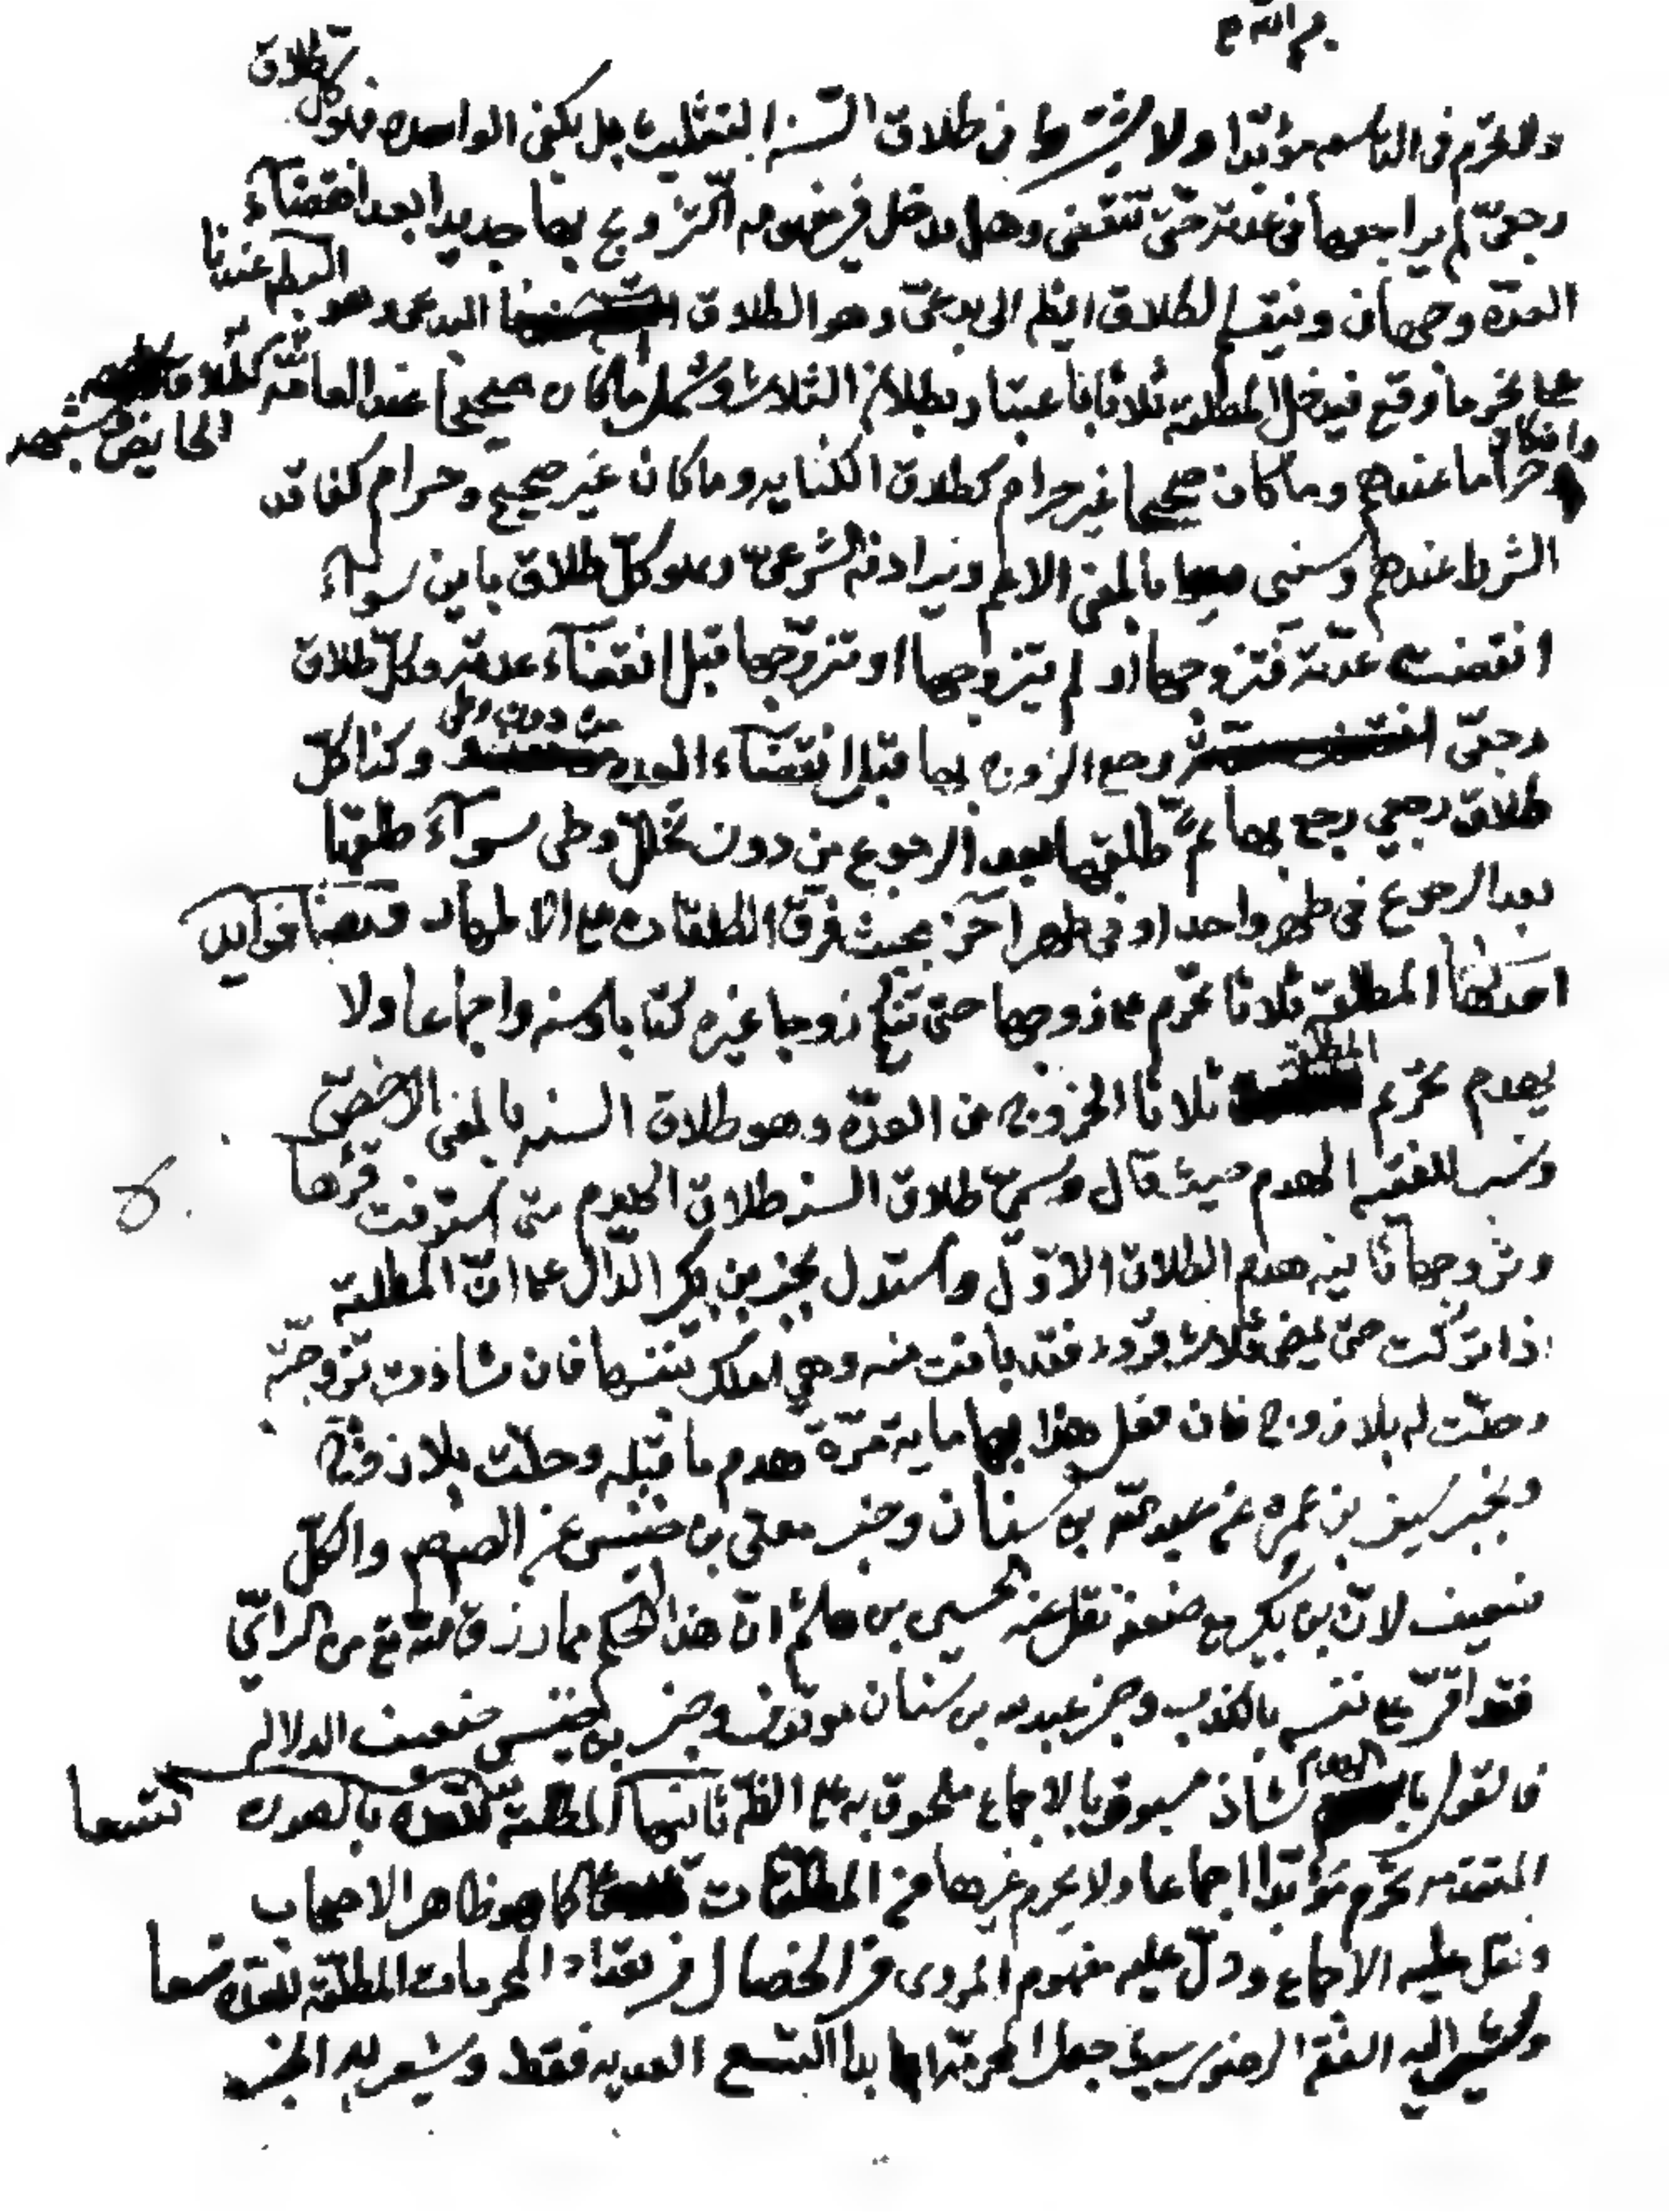 بسم الله
ولا تحرم في التاسعه مؤبدا ولا يشترط في طلاق السنه التثليث بل يكفي الواحده فهو كل طلاق
رجعي لم يراجعها في عدته حتى تنقضي وهل يدخل في مفهومه التزويج بها جديدا بعد انقضاء
العدة وجهان وينقسم الطلاق ايضا الى بدعي وهو الطلاق البدعي وهو الباطل عندنا
على نحو ما وقع فيدخل المطلقه ثلاثا باعتبار بطلان الثلاث وشمل ما كان صحيحا عند العامة كطلاق
الحايض
وان كان حراما عندهم وما كان صحيحا غير حرام كطلاق الكنايه وما كان غير صحيح وحرام كفاقد
الشرط عندهم وسني بالمعنى الاعم ويرادفه الشرعي وهو كل طلاق باين سواء
انقضت عدته فتزوجها او لم يتزوجها او تزوجها قبل انقضاء عدته وكل طلاق
رجعي رجع الزوج بها قبل انقضاء العده من دون وطي وكذا كل
طلاق رجعي رجع بها ثم طلقها بعد الرجوع من دون تخلل وطي سواء طلقها
بعد الرجوع في طهر واحد او في طهر آخر بحيث فرق الطلقات على الاطهار وهنا فوايد
احدها المطلقة ثلاثا تحرم على زوجها حتى تنكح زوجا غيره كتابا وسنه واجماعا ولا
يهدم تحريم المطلقة ثلاثا الخروج من العدة وهو طلاق السنه بالمعنى الاخص
ونسب للفقيه الهدم حيث قال وسمي طلاق السنه طلاق الهدم متى استوفت قرؤها
وتزوجها ثانيه هدم الطلاق الاول واستدل بخبر بن بكير الدال على ان المطلقة
اذا تركت حتى يمضي ثلاث قروء فقد بانت منه وهي املك بنفسها فان شاءت تزوجته
وحلت له بلا زوج فان فعل هذا بها ماية مرة هدم ما قبله وحلت بلا زوج
وبخبر سيف بن عميره عن عبد الله بن سنان وخبر معلى بن خنيس عن الصم والكل
ضعيف لان بن بكير مع ضعفه نقل عنه الحسين بن هاشم ان هذا الحكم مما رزق الله تع من الرأي
فقد اقر على نفسه بالكذب وخبر عبد الله بن سنان موقوف وخبر بن خنيس ضعيف الدلاله
فالقول بالهدم شاذ مسبوق بالاجماع ملحوق به على الظ ثانيها المطلقة للعده بالعده تسعا
المتقدمه تحرم مؤبدا اجماعا ولا يحرم غيرها من المطلقات كما هو ظاهر الاصحاب
ونقل عليه الاجماع ودل عليه مفهوم المروي في الخصال في تعداد المحرمات المطلقة للعده تسعا
ويشير اليه الفقه الرضوي حيث جعل المحرمة ابدا التسع العديه فقط ويشعر به الخبر